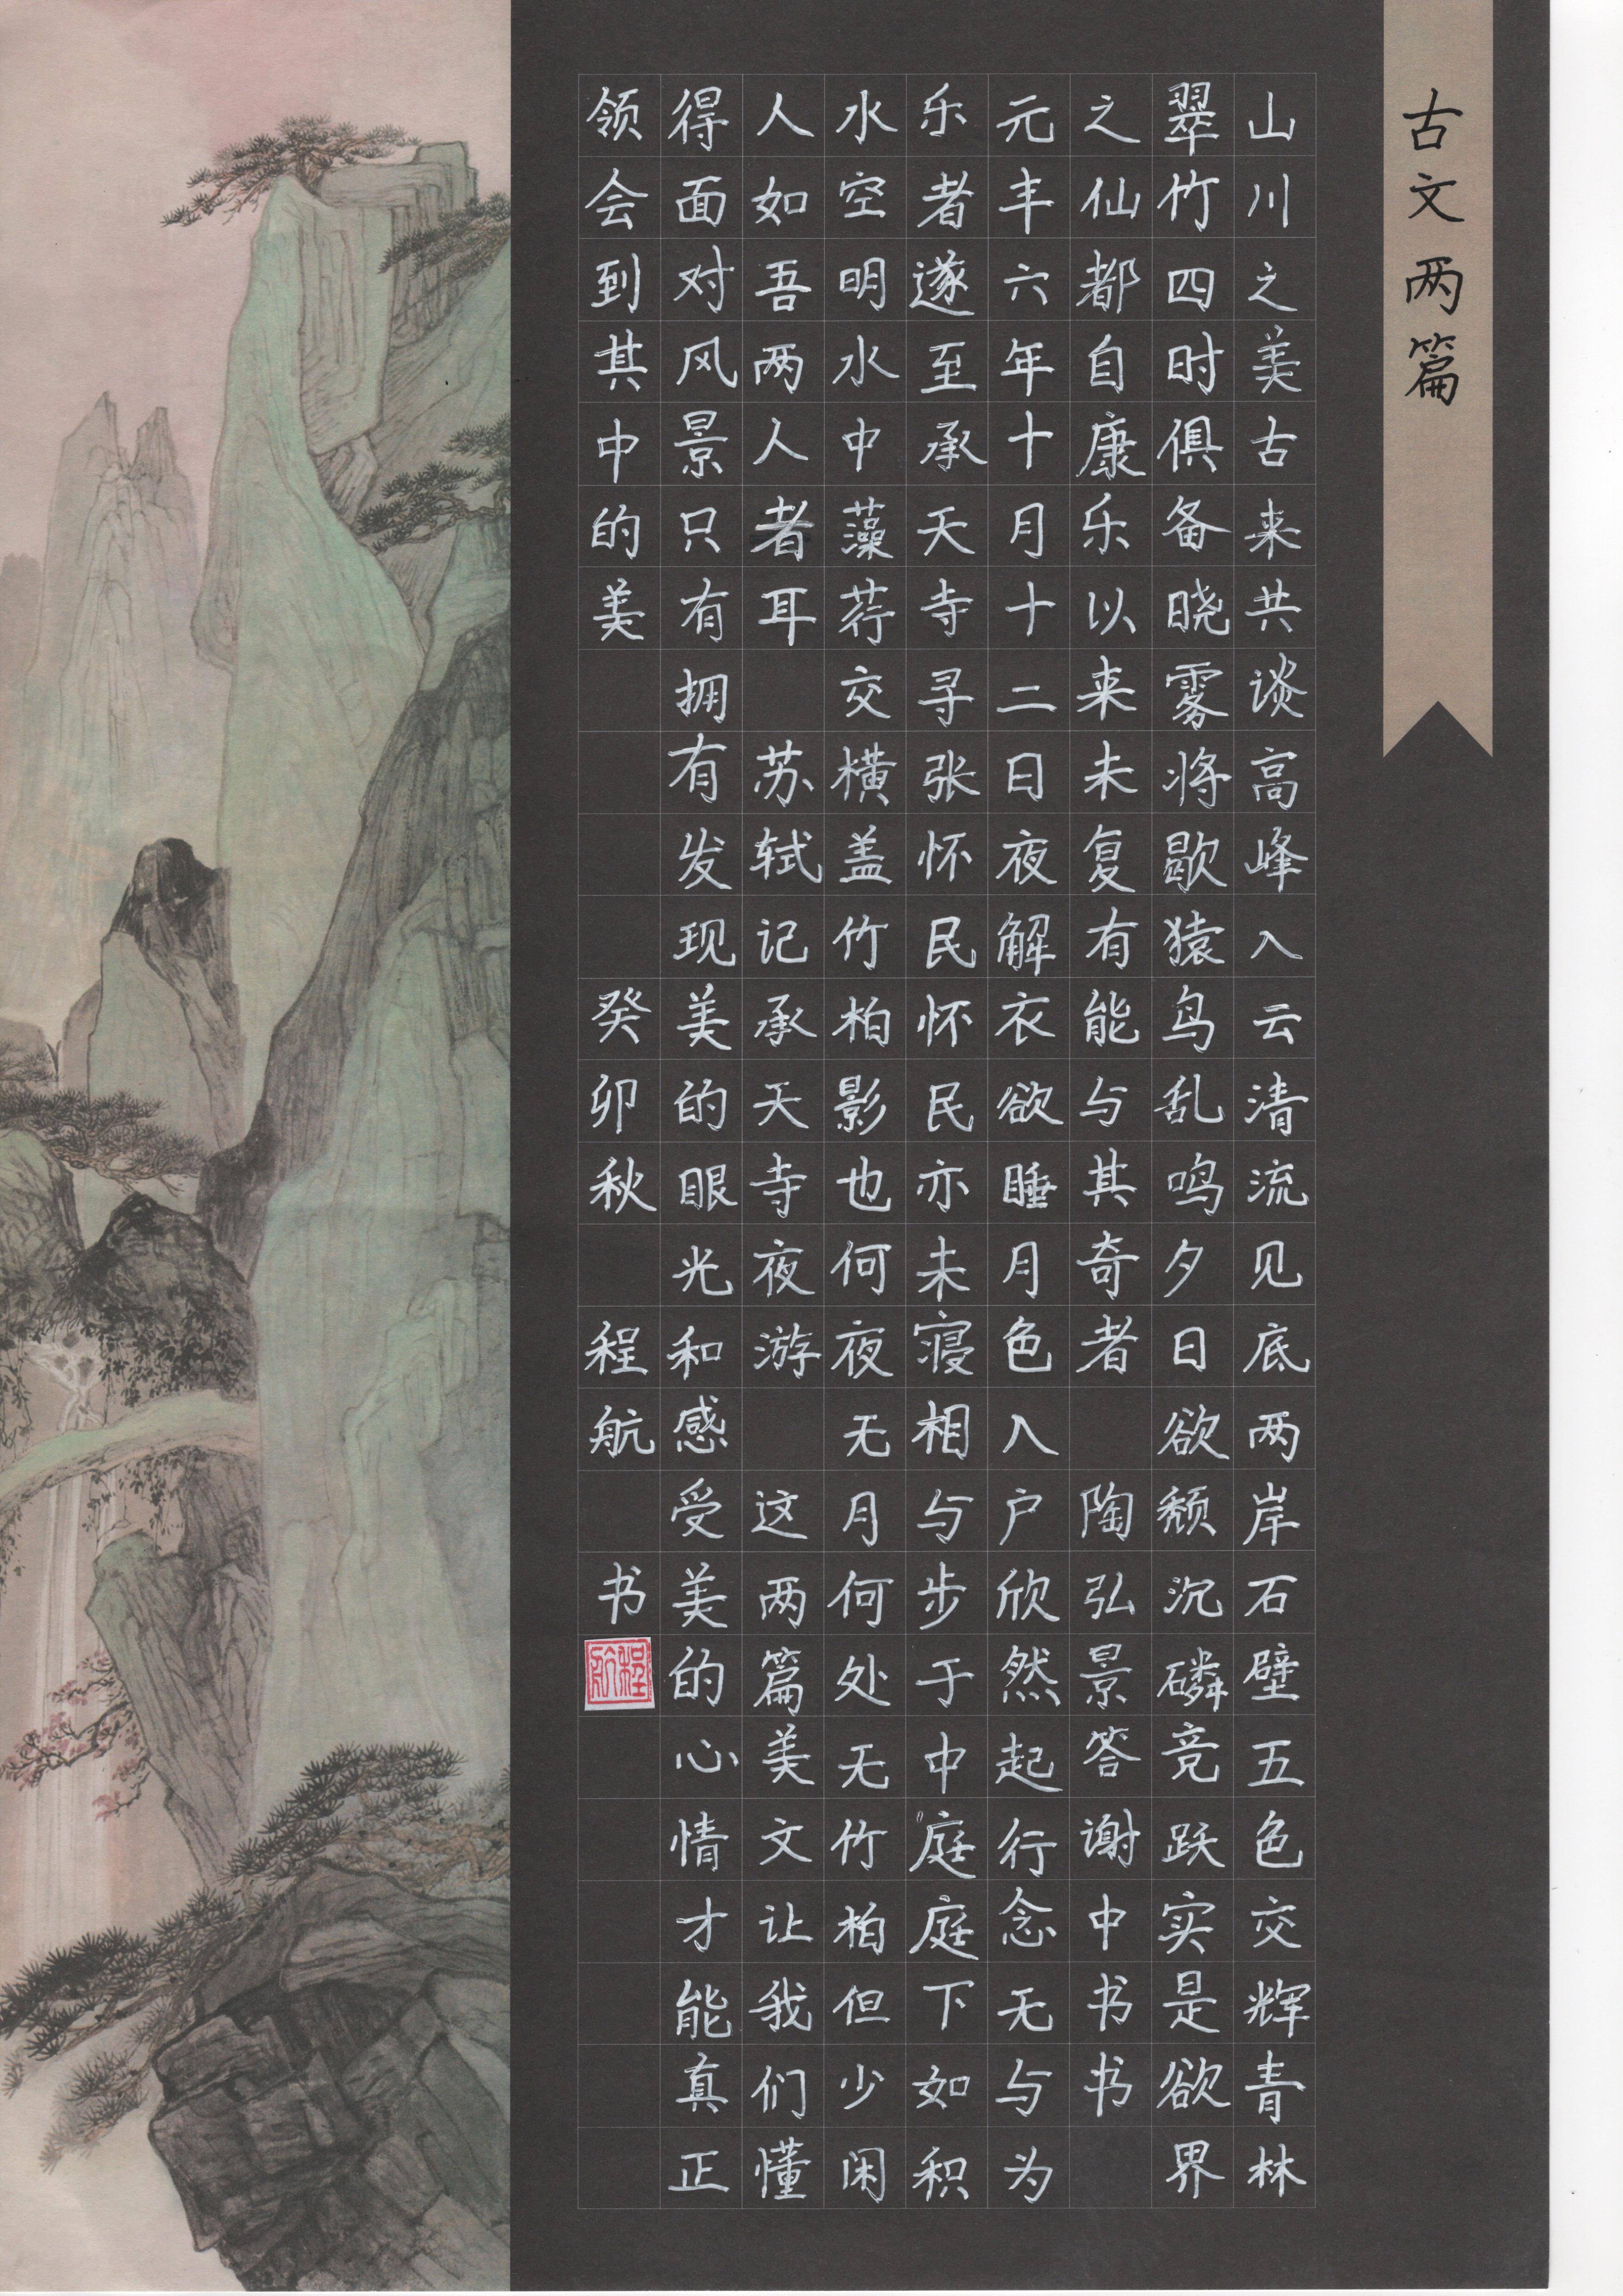 古文两篇
山川之美古来共谈高峰入云清流见底两岸石壁五色交辉青林
翠竹四时俱备晓雾将歇猿鸟乱鸣夕日欲颓沉磷竞跃实是欲界
之仙都自康乐以来未复有能与其奇者 陶弘景答谢中书书
元丰六年十月十二日夜解衣欲睡月色入户欣然起行念无与为
乐者遂至承天寺寻张怀民怀民亦未寝相与步于中庭庭下如积
水空明水中藻荇交横盖竹柏影也何夜无月何处无竹柏但少闲
人如吾两人者耳 苏轼记承天寺夜游 这两篇美文让我们懂
得面对风景只有拥有发现美的眼光和感受美的心情才能真正
领会到其中的美 癸卯秋 程航 书
程航